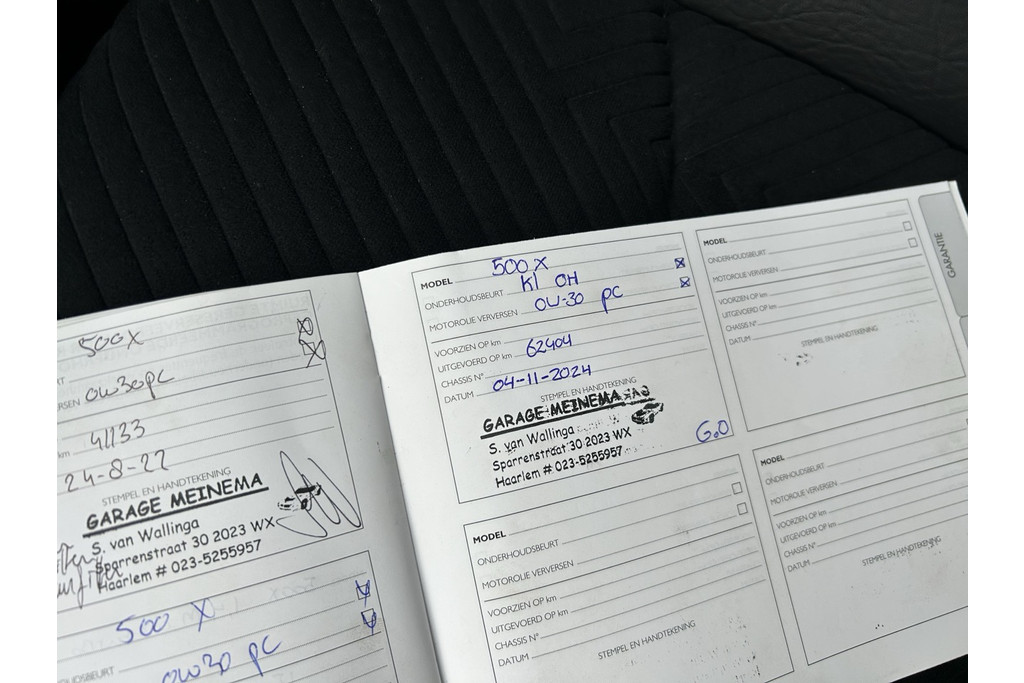 500X
RSEN OW30PC
km 41133
24-8-22
STEMPEL EN HANDTEKENING
GARAGE MEINEMA
S. van Wallinga
Sparrenstraat 30 2023 WX
Haarlem # 023-5255957
500 X
OW30 PC
MODEL 500X
ONDERHOUDSBEURT Kl OH
MOTOROLIE VERVERSEN OW-30 PC
VOORZIEN OP km
UITGEVOERD OP km 62404
CHASSIS N°
DATUM 04-11-2024
STEMPEL EN HANDTEKENING
GARAGE MEINEMA
S. van Wallinga
Sparrenstraat 30 2023 WX
Haarlem # 023-5255957
G.O
MODEL
ONDERHOUDSBEURT
MOTOROLIE VERVERSEN
VOORZIEN OP km
UITGEVOERD OP km
CHASSIS N°
DATUM
STEMPEL EN HANDTEKENING
MODEL
ONDERHOUDSBEURT
MOTOROLIE VERVERSEN
VOORZIEN OP km
UITGEVOERD OP km
CHASSIS N°
DATUM
STEMPEL EN HANDTEKENING
MODEL
ONDERHOUDSBEURT
MOTOROLIE VERVERSEN
VOORZIEN OP km
UITGEVOERD OP km
CHASSIS N°
DATUM
STEMPEL EN HANDTEKENING
GARANTIE